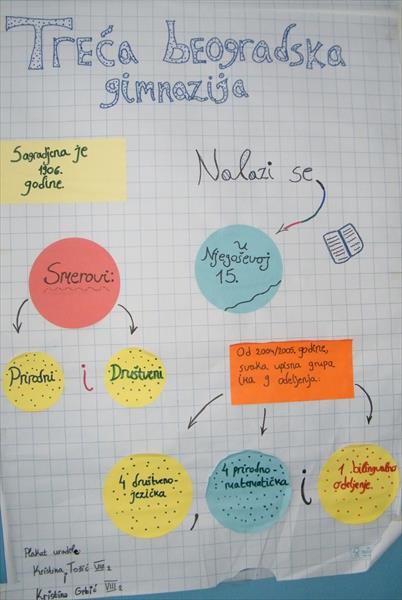 Treća beogradska
gimnazija
Sagradjena je
1906.
godine.
Nalazi se
u
Njegoševoj
15.
Smerovi:
Prirodni
i
Društveni
Od 2004/2005. godine,
svaka upisna grupa
ika 9 odeljenja:
4 društveno-
jezička
,
4 prirodno-
matematička
i
1 bilingvalno
odeljenje.
Plakat uradile
Kristina Tošić VIII 2
i
Kristina Grbić VIII 2